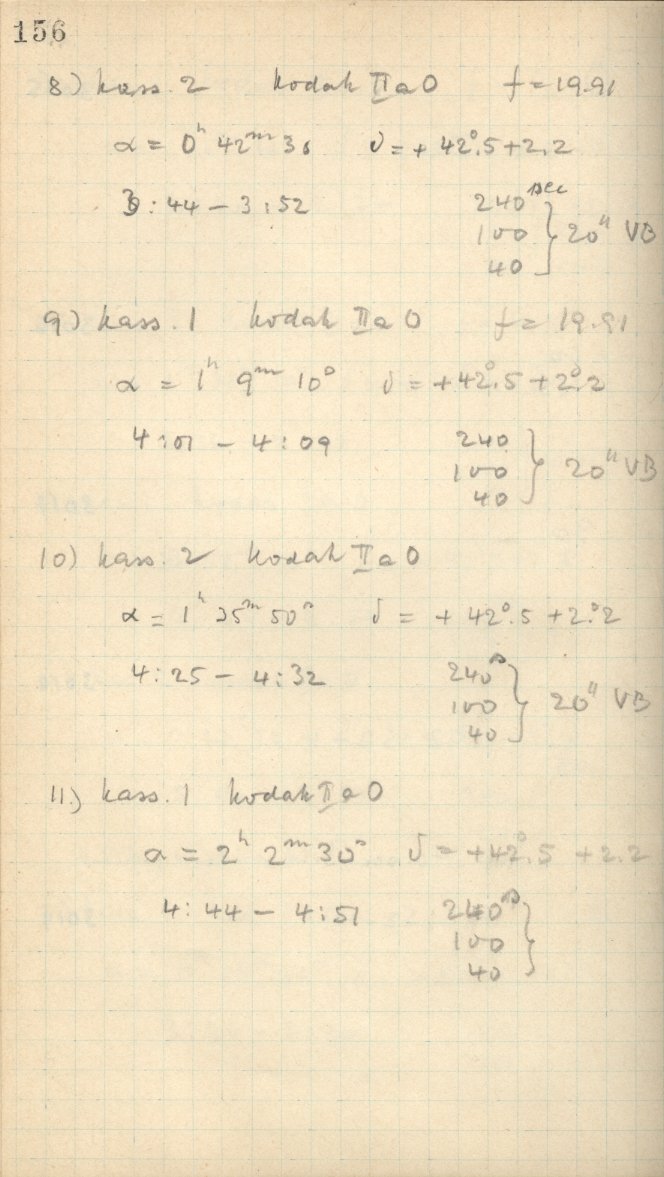 156
8) kass. 2 Kodak IIaO f = 19.91
α = 0ʰ 42ᵐ 36 δ = + 42°.5 + 2.2
3:44 – 3:52 240 sec
100 } 20" VB
40
9) kass. 1 Kodak IIaO f = 19.91
α = 1ʰ 9ᵐ 10ˢ δ = + 42°.5 + 2°.2
4:01 – 4:09 240
100 } 20" VB
40
10) kass. 2 Kodak IIaO
α = 1ʰ 25ᵐ 50ˢ δ = + 42°.5 + 2°.2
4:25 – 4:32 240ˢ
100 } 20" VB
40
11.) kass. 1 Kodak IIaO
α = 2ʰ 2ᵐ 30ˢ δ = + 42°.5 + 2.2
4:44 – 4:51 240ˢ
100 }
40